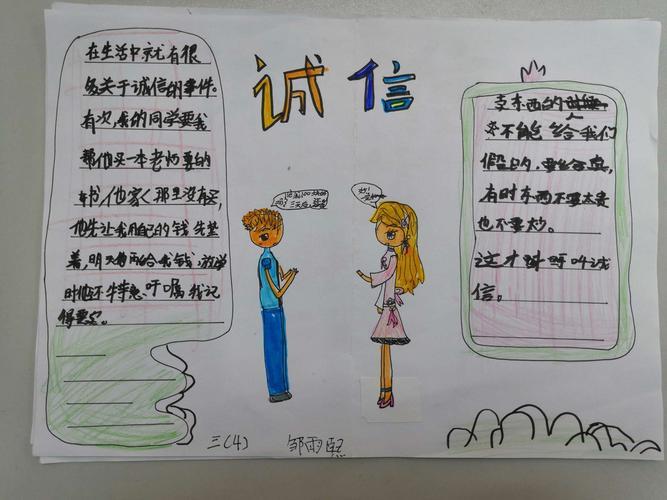 诚信
在生活中就有很
多关于诚信的事件。
有次,我的同学要我
帮他买一本老师要的
书,他家那里没有买,
他先让我用自己的钱先垫
着,明天他再给我钱,放学
时他还特意叮嘱我记
得要买。
三天后还
好!
东西的
不能给我们
假的,要给真,
有时东西不要太贵
也不要炒。
这才叫诚
信。
三(4) 邹雨熙